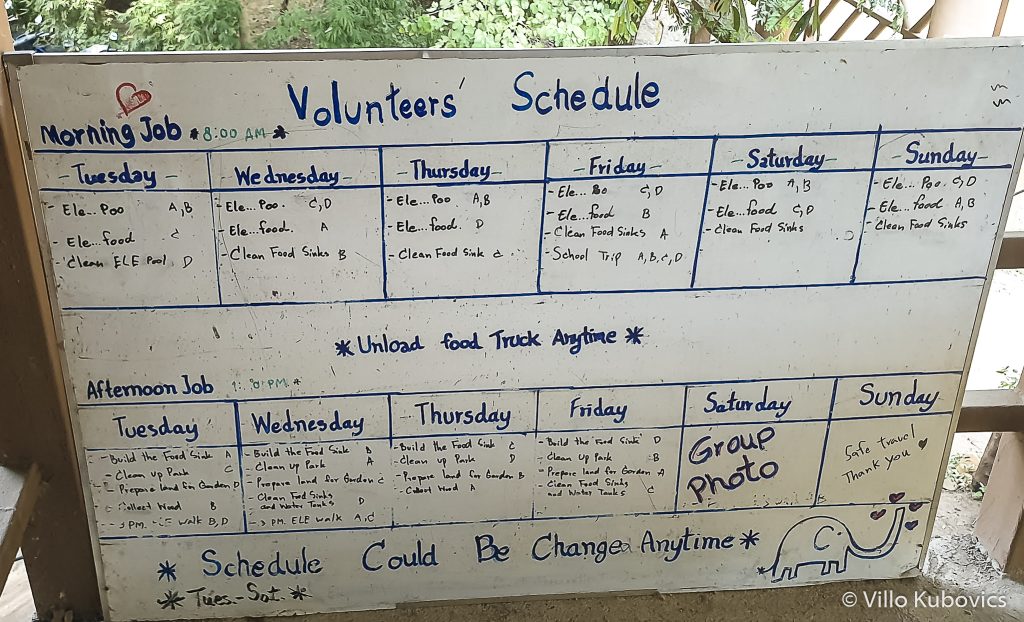 Volunteers' Schedule
Morning Job * 8:00 AM *
- Tuesday -
- Ele... Poo A,B
- Ele...food C
- Clean ELE Pool D
Wednesday -
- Ele... Poo. C,D
- Ele...food. A
- Clean Food Sinks B
- Thursday -
- Ele... Poo A,B
- Ele...food. D
- Clean Food Sink C
- Friday -
- Ele... Poo C,D
- Ele...food B
- Clean Food Sinks A
- School Trip A,B,C,D
- Saturday -
- Ele... Poo A,B
- Ele...food C,D
- Clean Food Sinks
- Sunday -
- Ele... Poo. C,D
- Ele...food A,B
- Clean Food Sinks
* Unload food Truck Anytime *
Afternoon Job PM. *
Tuesday
- Build the Food Sink A
- Clean up Park C
- Prepare land for Garden D
- Collect Wood B
- 3 PM. ELE walk B,D
Wednesday
- Build the Food Sink B
- Clean up Park A
- Prepare land for Garden C
- Clean Food Sinks
and Water Tanks D
- 3 PM. ELE walk A,C
- Thursday
- Build the Food Sink C
- Clean up Park D
- Prepare land for Garden B
- Collect Wood A
Friday
- Build the Food Sink D
- Clean up Park B
- Prepare land for Garden A
- Clean Food Sinks
and Water Tanks C
Saturday
Group
Photo
Sunday
Safe travel
Thank you
C
* Schedule Could Be Changed Anytime *
* Tues.-Sat. *
© Villo Kubovics